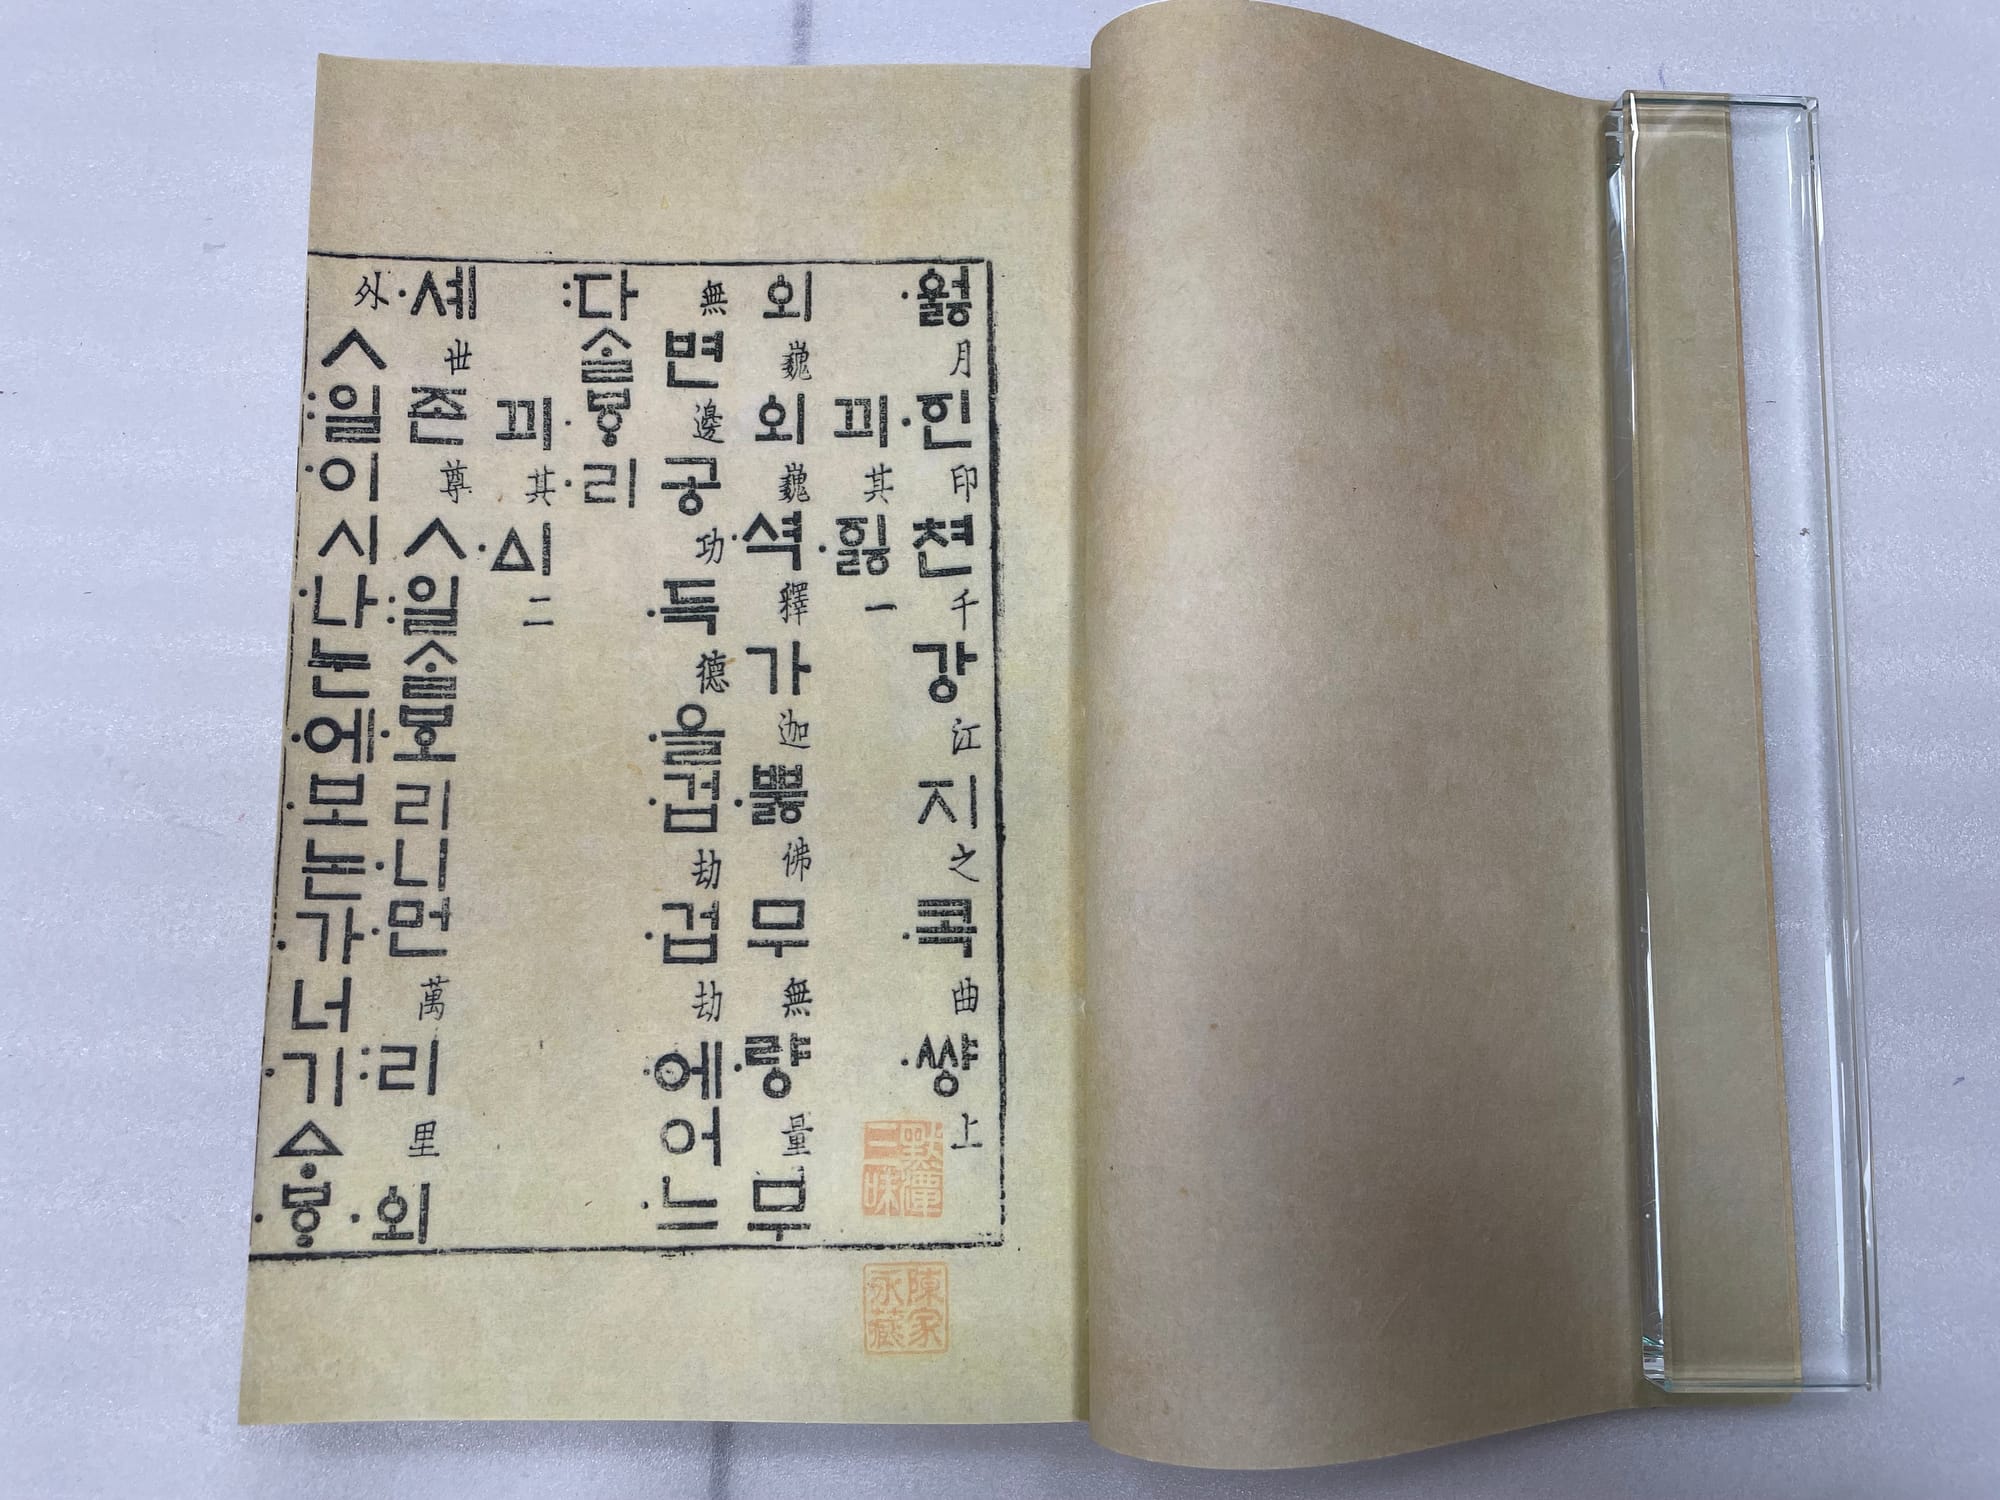 ·웛月·힌印쳔千강江지之·콕曲·썅上
끠其·ᅙᅵᇙ一
외巍외巍·셕釋가迦·뿛佛무無·량量무
無변邊공功·득德·을·겁劫·겁劫·에어·느
:다ᄉᆞᆯ·ᄫᆞ·리
끠其·ᅀᅵ二
·셰世존尊ㅅ:일ᄉᆞᆯ·ᄫᅩ리·니·먼萬:리里·외
外ㅅ:일·이시·나·눈·에·보논·가너·기ᅀᆞ·ᄫᆞ
陳家永藏